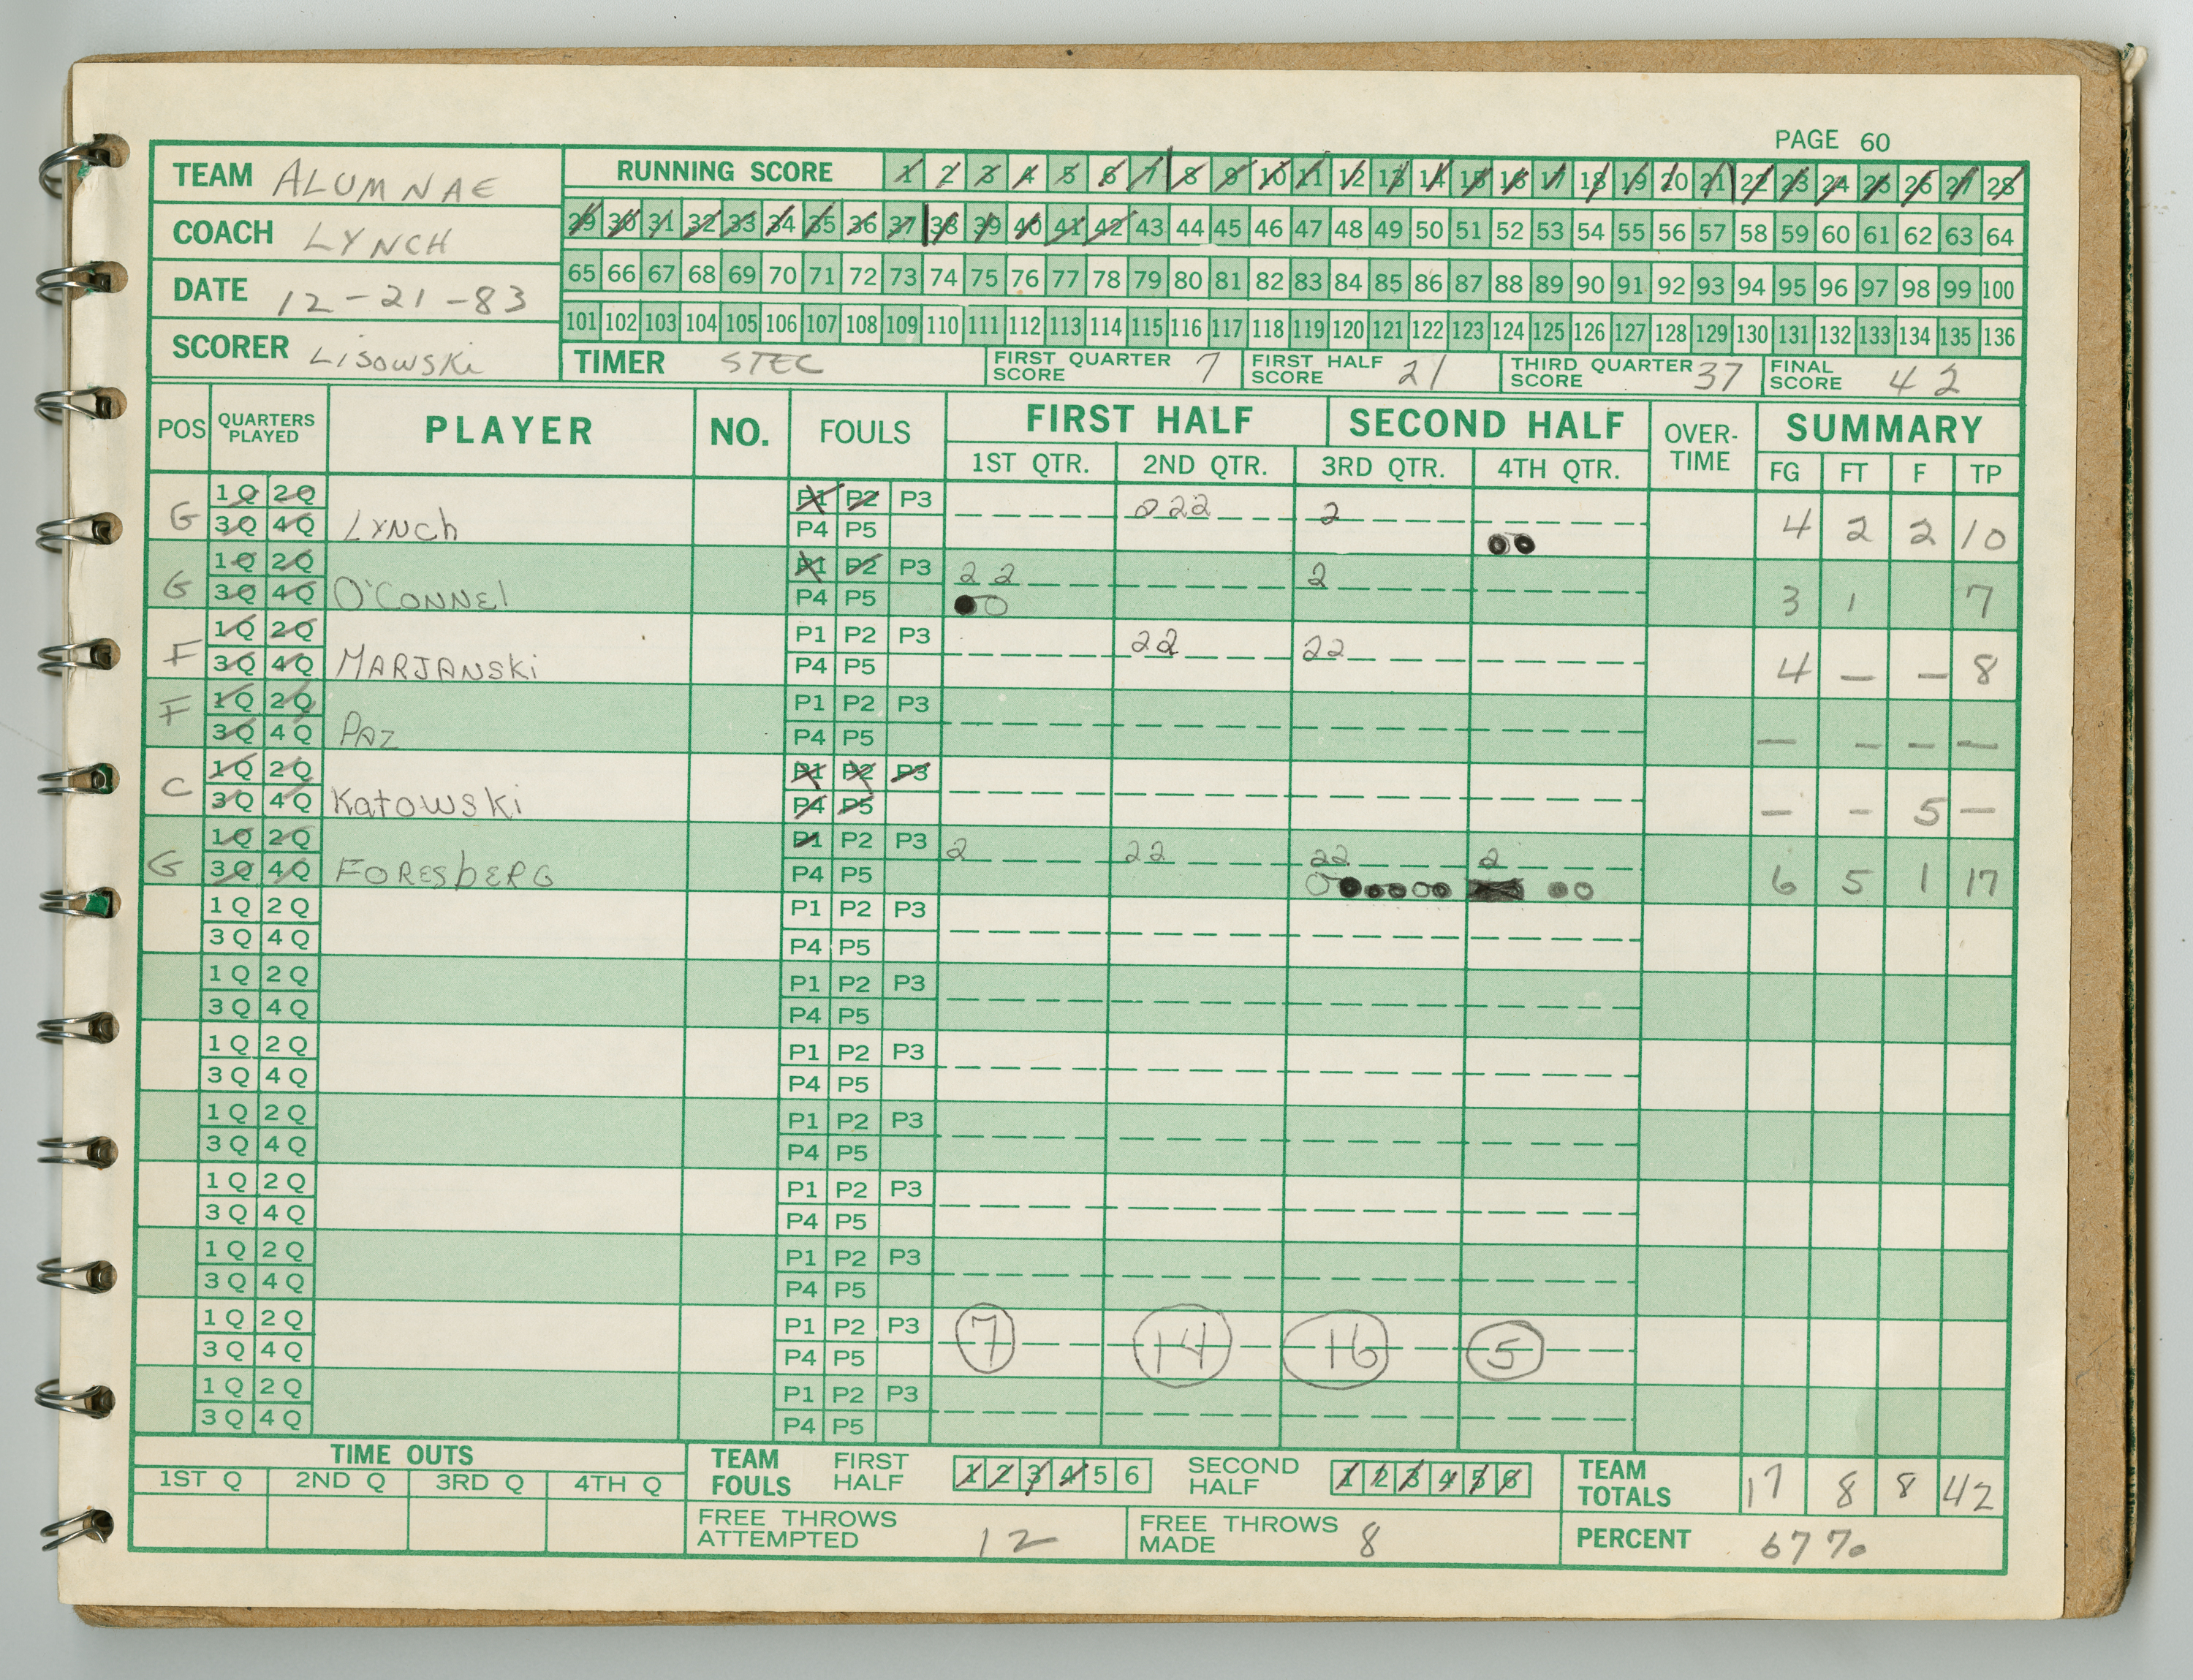 PAGE 60
TEAM ALUMNAE
RUNNING SCORE 1 2 3 4 5 6 7 8 9 10 11 12 13 14 15 16 17 18 19 20 21 22 23 24 25 26 27 28
COACH LYNCH
29 30 31 32 33 34 35 36 37 38 39 40 41 42 43 44 45 46 47 48 49 50 51 52 53 54 55 56 57 58 59 60 61 62 63 64
DATE 12-21-83
65 66 67 68 69 70 71 72 73 74 75 76 77 78 79 80 81 82 83 84 85 86 87 88 89 90 91 92 93 94 95 96 97 98 99 100
101 102 103 104 105 106 107 108 109 110 111 112 113 114 115 116 117 118 119 120 121 122 123 124 125 126 127 128 129 130 131 132 133 134 135 136
SCORER LISOWSKi
TIMER STEC FIRST QUARTER SCORE 7 FIRST HALF SCORE 21 THIRD QUARTER SCORE 37 FINAL SCORE 42
POS QUARTERS PLAYED PLAYER NO. FOULS FIRST HALF SECOND HALF OVER-TIME SUMMARY
1ST QTR. 2ND QTR. 3RD QTR. 4TH QTR. FG FT F TP
G 1Q 2Q P1 P2 P3 222 2
3Q 4Q LYNCh P4 P5 4 2 2 10
G 1Q 2Q P1 P2 P3 2 2 2
3Q 4Q O'CONNEl P4 P5 3 1 7
F 1Q 2Q P1 P2 P3 22 22
3Q 4Q MARJANSKi P4 P5 4 — — 8
F 1Q 2Q P1 P2 P3
3Q 4Q PAZ P4 P5 — — — —
C 1Q 2Q P1 P2 P3
3Q 4Q KatowSKi P4 P5 — — 5 —
G 1Q 2Q P1 P2 P3 2 22 22 2
3Q 4Q FORESbERG P4 P5 6 5 1 17
1Q 2Q P1 P2 P3
3Q 4Q P4 P5
1Q 2Q P1 P2 P3
3Q 4Q P4 P5
1Q 2Q P1 P2 P3
3Q 4Q P4 P5
1Q 2Q P1 P2 P3
3Q 4Q P4 P5
1Q 2Q P1 P2 P3
3Q 4Q P4 P5
1Q 2Q P1 P2 P3
3Q 4Q P4 P5
1Q 2Q P1 P2 P3 7 14 16 5
3Q 4Q P4 P5
1Q 2Q P1 P2 P3
3Q 4Q P4 P5
TIME OUTS
1ST Q 2ND Q 3RD Q 4TH Q
TEAM FOULS FIRST HALF 1 2 3 4 5 6 SECOND HALF 1 2 3 4 5 6 TEAM TOTALS 17 8 8 42
FREE THROWS ATTEMPTED 12 FREE THROWS MADE 8 PERCENT 67%